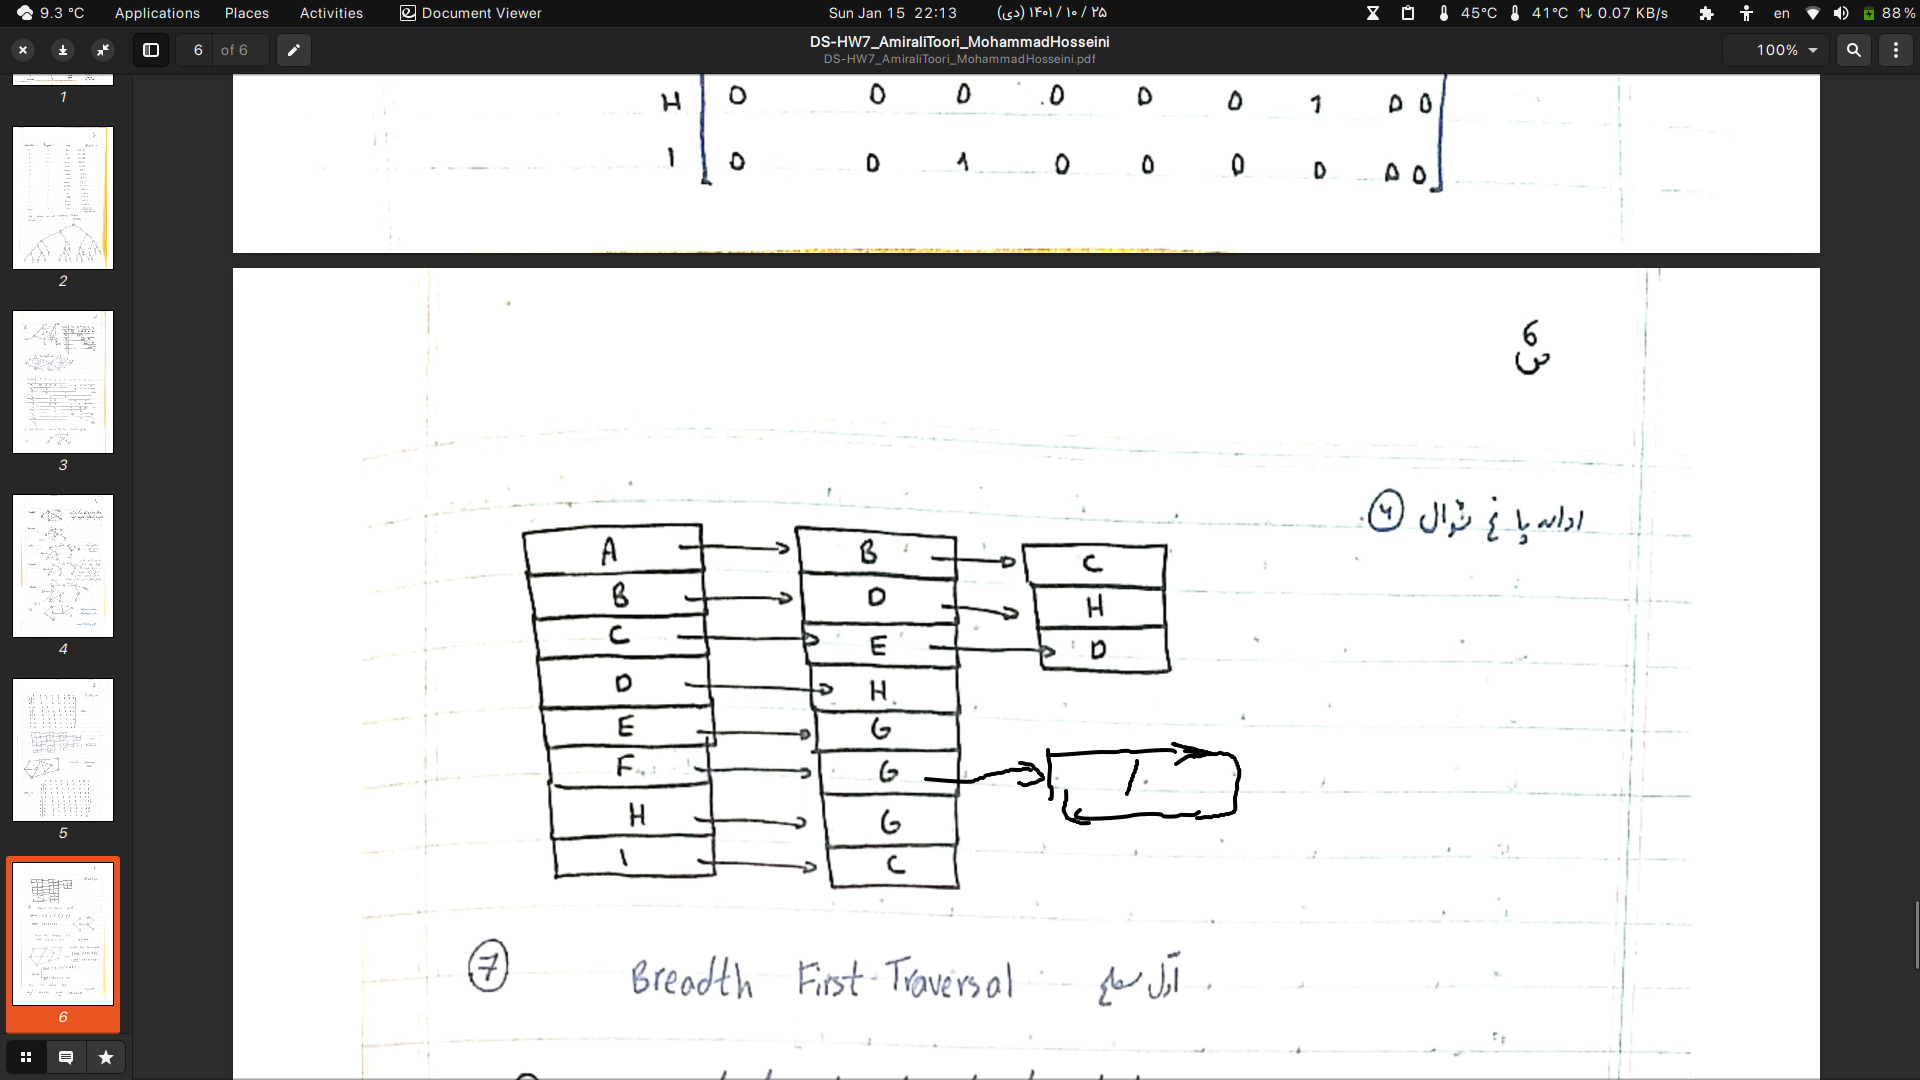 9.3 °C Applications Places Activities Document Viewer Sun Jan 15 22:13 ۲۵ / ۱۰ / ۱۴۰۱ (دی) 45°C 41°C 0.07 KB/s en 88%
6 of 6 DS-HW7_AmiraliToori_MohammadHosseini 100%
DS-HW7_AmiraliToori_MohammadHosseini.pdf
1
2
3
4
5
6
H 0 0 0 0 0 0 1 0 0
I 0 0 1 0 0 0 0 0 0
6
ص
ادامه پاسخ سوال ۶
A B C
B D H
C E D
D H
E G
F G I
H G
I C
7 Breadth First-Traversal اول سطح